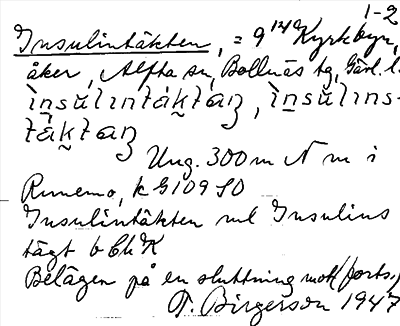 1-2
Insulintäkten, = 9 Kyrkbyn,
åker, Alfta sn, Bollnäs tg, Gävl. l.
ìnsúlıntáktaŋ, ìnsúlıns-
tàktaŋ
Ung. 300 m N m i
Runemo, k G109 SO
Insulintäkten ml Insulins
tägt b Ch K
Belägen på en sluttning mot (forts.)
T. Birgerson 1947